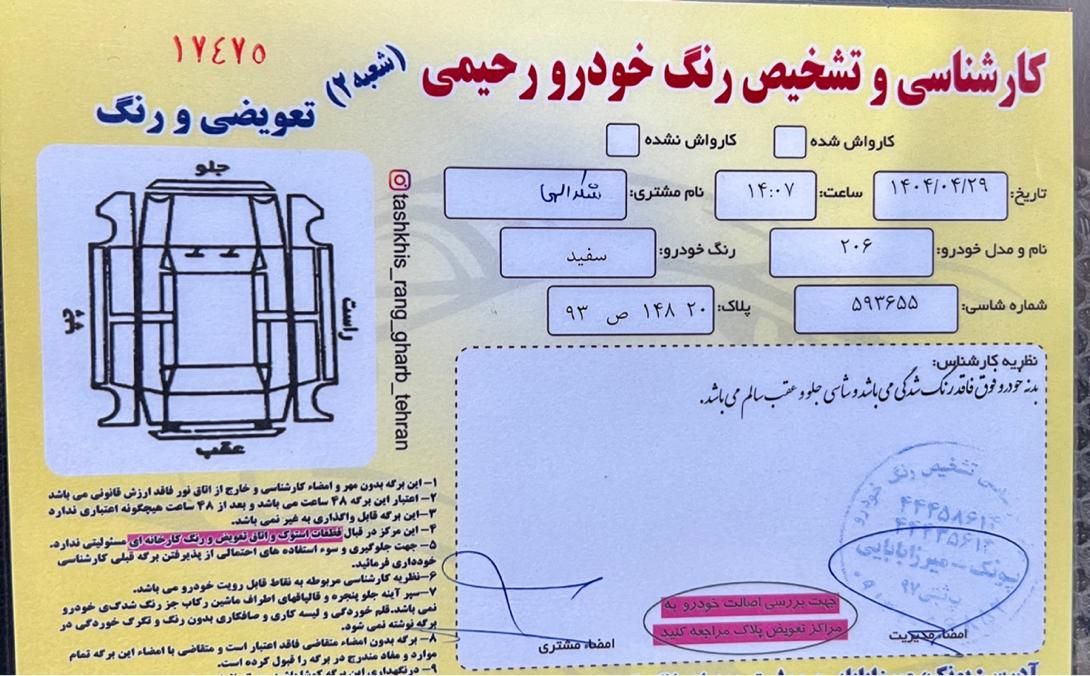 ۱۷۴۷۵
کارشناسی و تشخیص رنگ خودرو رحیمی
(شعبه۲)
تعویضی و رنگ
کارواش شده
کارواش نشده
تاریخ: ۱۴۰۴/۰۴/۲۹
ساعت: ۱۴:۰۷
نام مشتری: شکرالهی
نام و مدل خودرو: ۲۰۶
رنگ خودرو: سفید
شماره شاسی: ۵۹۳۶۵۵
پلاک: ۲۰ ۱۴۸ ص ۹۳
جلو
چپ
راست
عقب
tashkhis_rang_gharb_tehran
نظریه کارشناس:
بدنه خودرو فوق فاقد رنگ شدگی می باشد و شاسی جلو و عقب سالم می باشد.
۱- این برگه بدون مهر و امضاء کارشناسی و خارج از اتاق نور فاقد ارزش قانونی می باشد
۲- اعتبار این برگه ۴۸ ساعت می باشد و بعد از ۴۸ ساعت هیچگونه اعتباری ندارد
۳- این برگه قابل واگذاری به غیر نمی باشد.
۴- این مرکز در قبال قطعات استوک و اتاق تعویض و رنگ کارخانه ای مسئولیتی ندارد.
۵- جهت جلوگیری و سوء استفاده های احتمالی از پذیرفتن برگه قبلی کارشناسی
خودداری فرمائید.
۶- نظریه کارشناسی مربوطه به نقاط قابل رویت خودرو می باشد.
۷- سپر آینه جلو پنجره و قالپاقهای اطراف ماشین رکاب جز رنگ شدگی خودرو
نمی باشد. قلم خوردگی و لیسه کاری و صافکاری بدون رنگ و تگرگ خوردگی در
برگه نوشته نمی شود.
۸- برگه بدون امضاء متقاضی فاقد اعتبار است و متقاضی با امضاء این برگه تمام
موارد و مفاد مندرج در برگه را قبول کرده است.
تشخیص رنگ خودرو
۴۴۴۵۸۶۱۴
پونک - میرزابابایی
جهت بررسی اصالت خودرو به
مراکز تعویض پلاک مراجعه کنید
امضاء مدیریت
امضاء مشتری